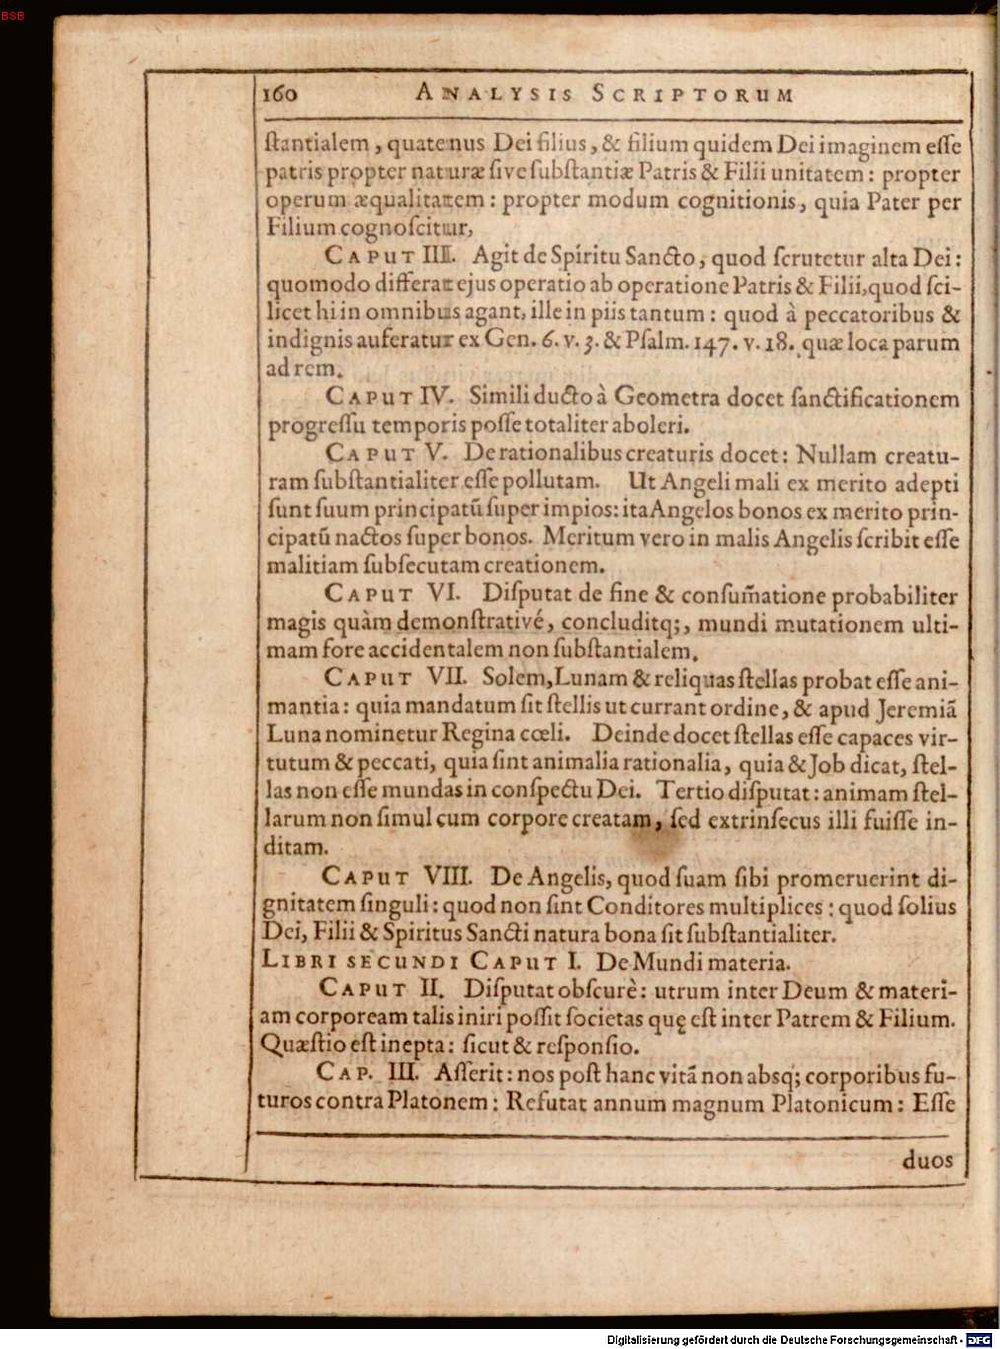 BSB
160 ANALYSIS SCRIPTORUM
ſtantialem, quatenus Dei filius, & filium quidem Dei imaginem eſſe
patris propter naturæ ſive ſubſtantiæ Patris & Filii unitatem: propter
operum æqualitatem: propter modum cognitionis, quia Pater per
Filium cognoſcitur,
CAPUT III. Agit de Spiritu Sancto, quod ſcrutetur alta Dei:
quomodo differat ejus operatio ab operatione Patris & Filii, quod ſci-
licet hi in omnibus agant, ille in piis tantum: quod à peccatoribus &
indignis auferatur ex Gen. 6. v. 3. & Pſalm. 147. v. 18. quæ loca parum
ad rem.
CAPUT IV. Simili ducto à Geometra docet ſanctificationem
progreſſu temporis poſſe totaliter aboleri.
CAPUT V. De rationalibus creaturis docet: Nullam creatu-
ram ſubſtantialiter eſſe pollutam. Ut Angeli mali ex merito adepti
ſunt ſuum principatū ſuper impios: ita Angelos bonos ex merito prin-
cipatū nactos ſuper bonos. Meritum vero in malis Angelis ſcribit eſſe
malitiam ſubſecutam creationem.
CAPUT VI. Diſputat de fine & conſum̃atione probabiliter
magis quàm demonſtrativé, concluditq;, mundi mutationem ulti-
mam fore accidentalem non ſubſtantialem.
CAPUT VII. Solem, Lunam & reliquas ſtellas probat eſſe ani-
mantia: quia mandatum ſit ſtellis ut currant ordine, & apud Jeremiã
Luna nominetur Regina cœli. Deinde docet ſtellas eſſe capaces vir-
tutum & peccati, quia ſint animalia rationalia, quia & Job dicat, ſtel-
las non eſſe mundas in conſpectu Dei. Tertio diſputat: animam ſtel-
larum non ſimul cum corpore creatam, ſed extrinſecus illi fuiſſe in-
ditam.
CAPUT VIII. De Angelis, quod ſuam ſibi promeruerint di-
gnitatem ſinguli: quod non ſint Conditores multiplices: quod ſolius
Dei, Filii & Spiritus Sancti natura bona ſit ſubſtantialiter.
LIBRI SECUNDI CAPUT I. De Mundi materia.
CAPUT II. Diſputat obſcurè: utrum inter Deum & materi-
am corpoream talis iniri poſſit ſocietas quę eſt inter Patrem & Filium.
Quæſtio eſt inepta: ſicut & reſponſio.
CAP. III. Aſſerit: nos poſt hanc vitã non absq; corporibus fu-
turos contra Platonem: Refutat annum magnum Platonicum: Eſſe
duos
Digitalisierung gefördert durch die Deutsche Forschungsgemeinschaft - DFG